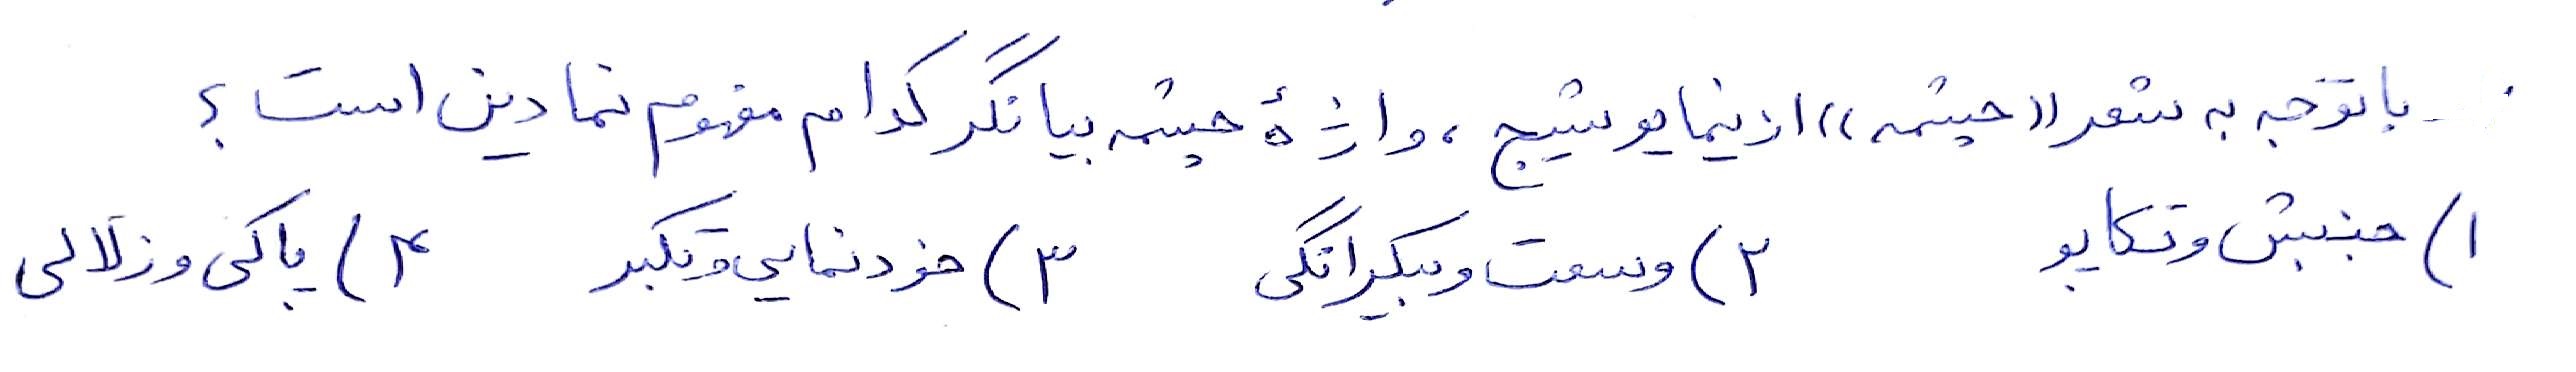 - با توجّه به شعر «چشمه» از نیما یوشیج، واژهٔ چشمه بیانگر کدام مفهوم نمادین است؟
۱) جنبش و تکاپو ۲) وسعت و بیکرانگی ۳) خودنمایی و تکبر ۴) پاکی و زلالی